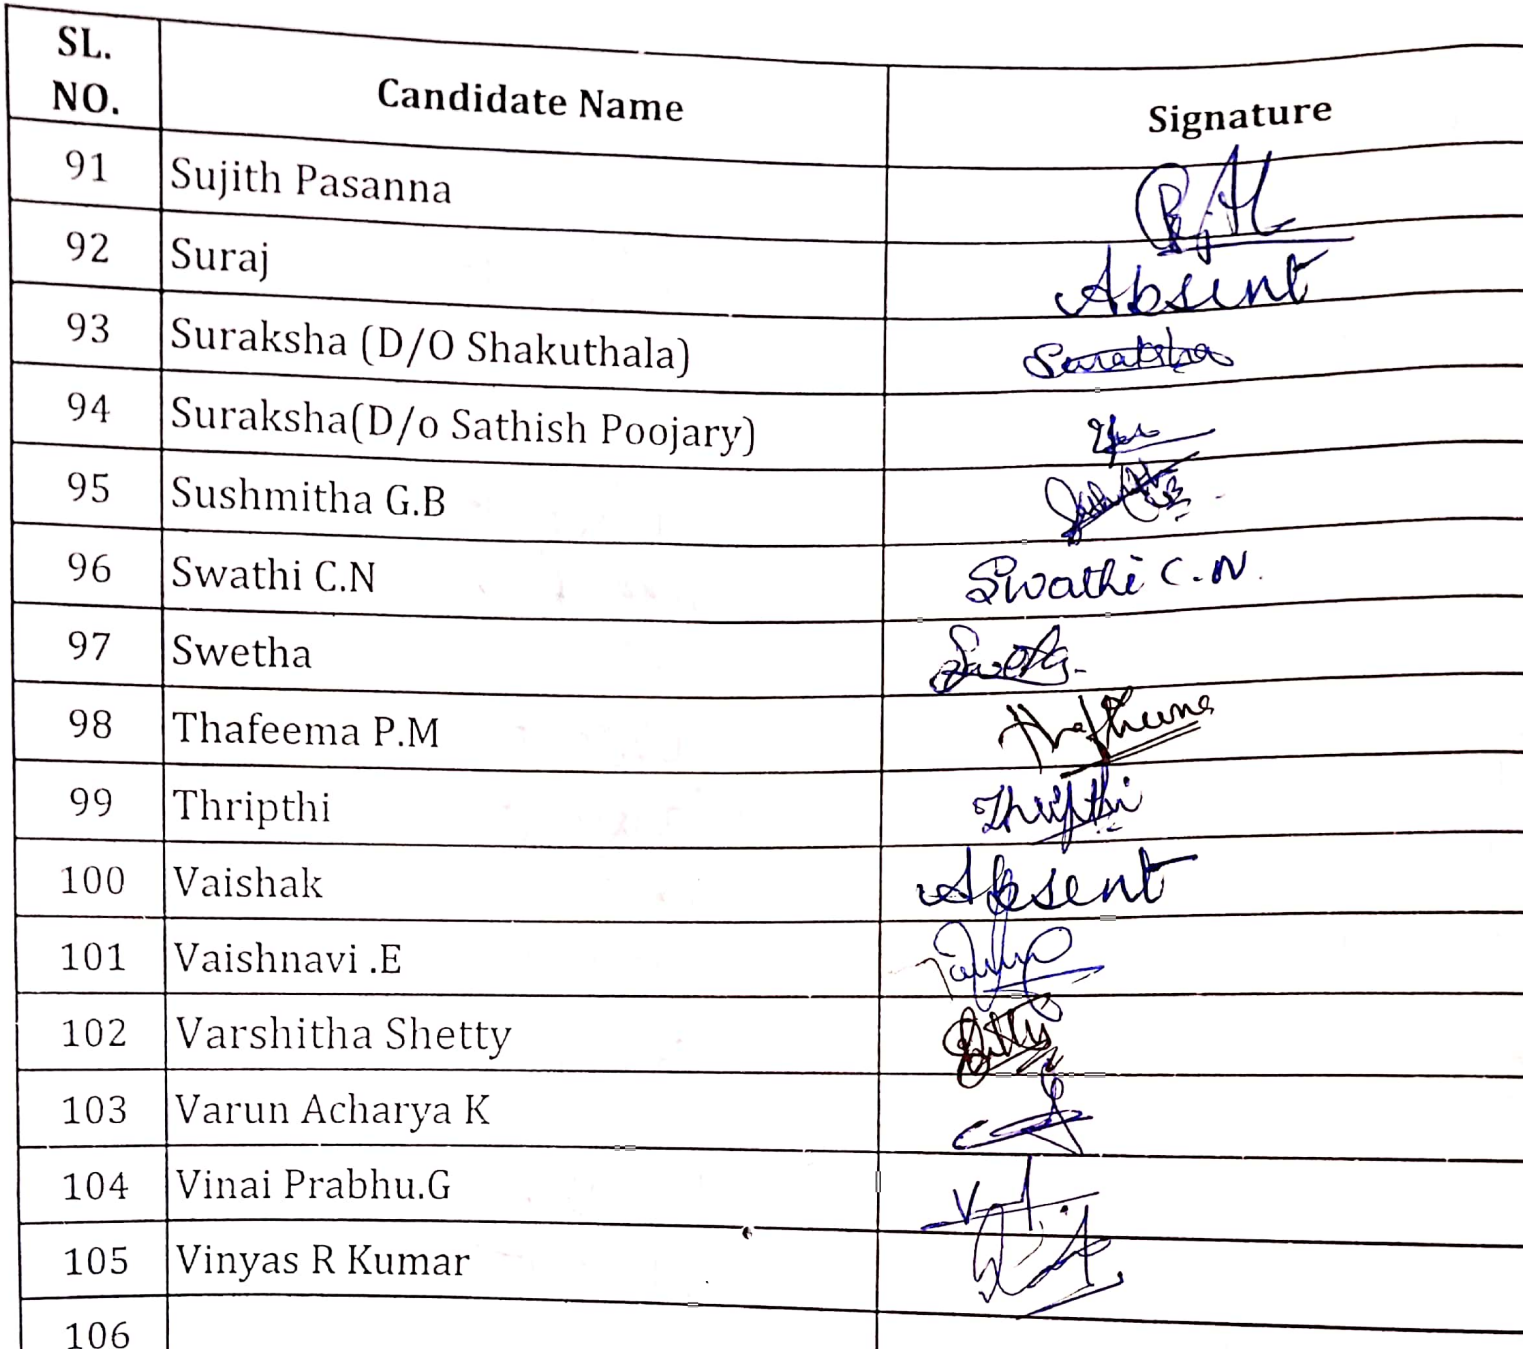 SL. NO. Candidate Name Signature
91 Sujith Pasanna
92 Suraj Absent
93 Suraksha (D/O Shakuthala) Suraksha
94 Suraksha(D/o Sathish Poojary)
95 Sushmitha G.B
96 Swathi C.N Swathi C.N.
97 Swetha
98 Thafeema P.M
99 Thripthi Thripthi
100 Vaishak Absent
101 Vaishnavi .E
102 Varshitha Shetty
103 Varun Acharya K
104 Vinai Prabhu.G
105 Vinyas R Kumar
106